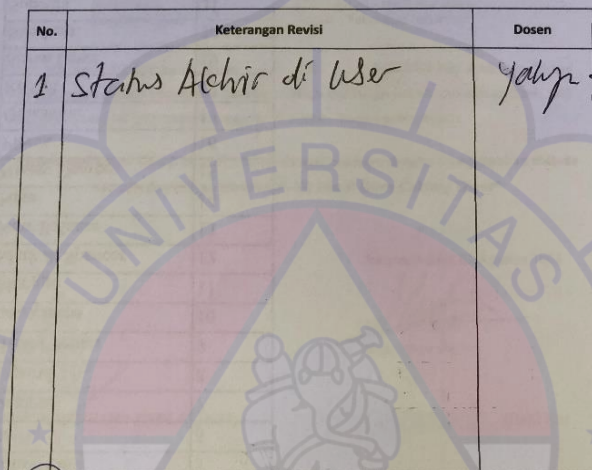 No. Keterangan Revisi Dosen
1 Status Akhir di User
UNIVERSITAS